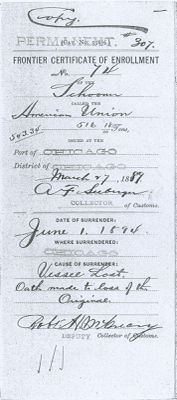 Copy.
PERMANENT. # 307.
(Cat. No. 
FRONTIER CERTIFICATE OF ENROLLMENT
No. 74
OF THE
Schooner
CALLED THE
American Union
543.34 516 Tons,
ISSUED AT THE
Port of CHICAGO
District of CHICAGO
March 27, 1889
A. F. Seeberger
COLLECTOR of Customs.
DATE OF SURRENDER:
June 1. 1894.
WHERE SURRENDERED:
CHICAGO
CAUSE OF SURRENDER:
Vessel Lost.
Oath made to loss of the
Original.
DEPUTY Collector of Customs.